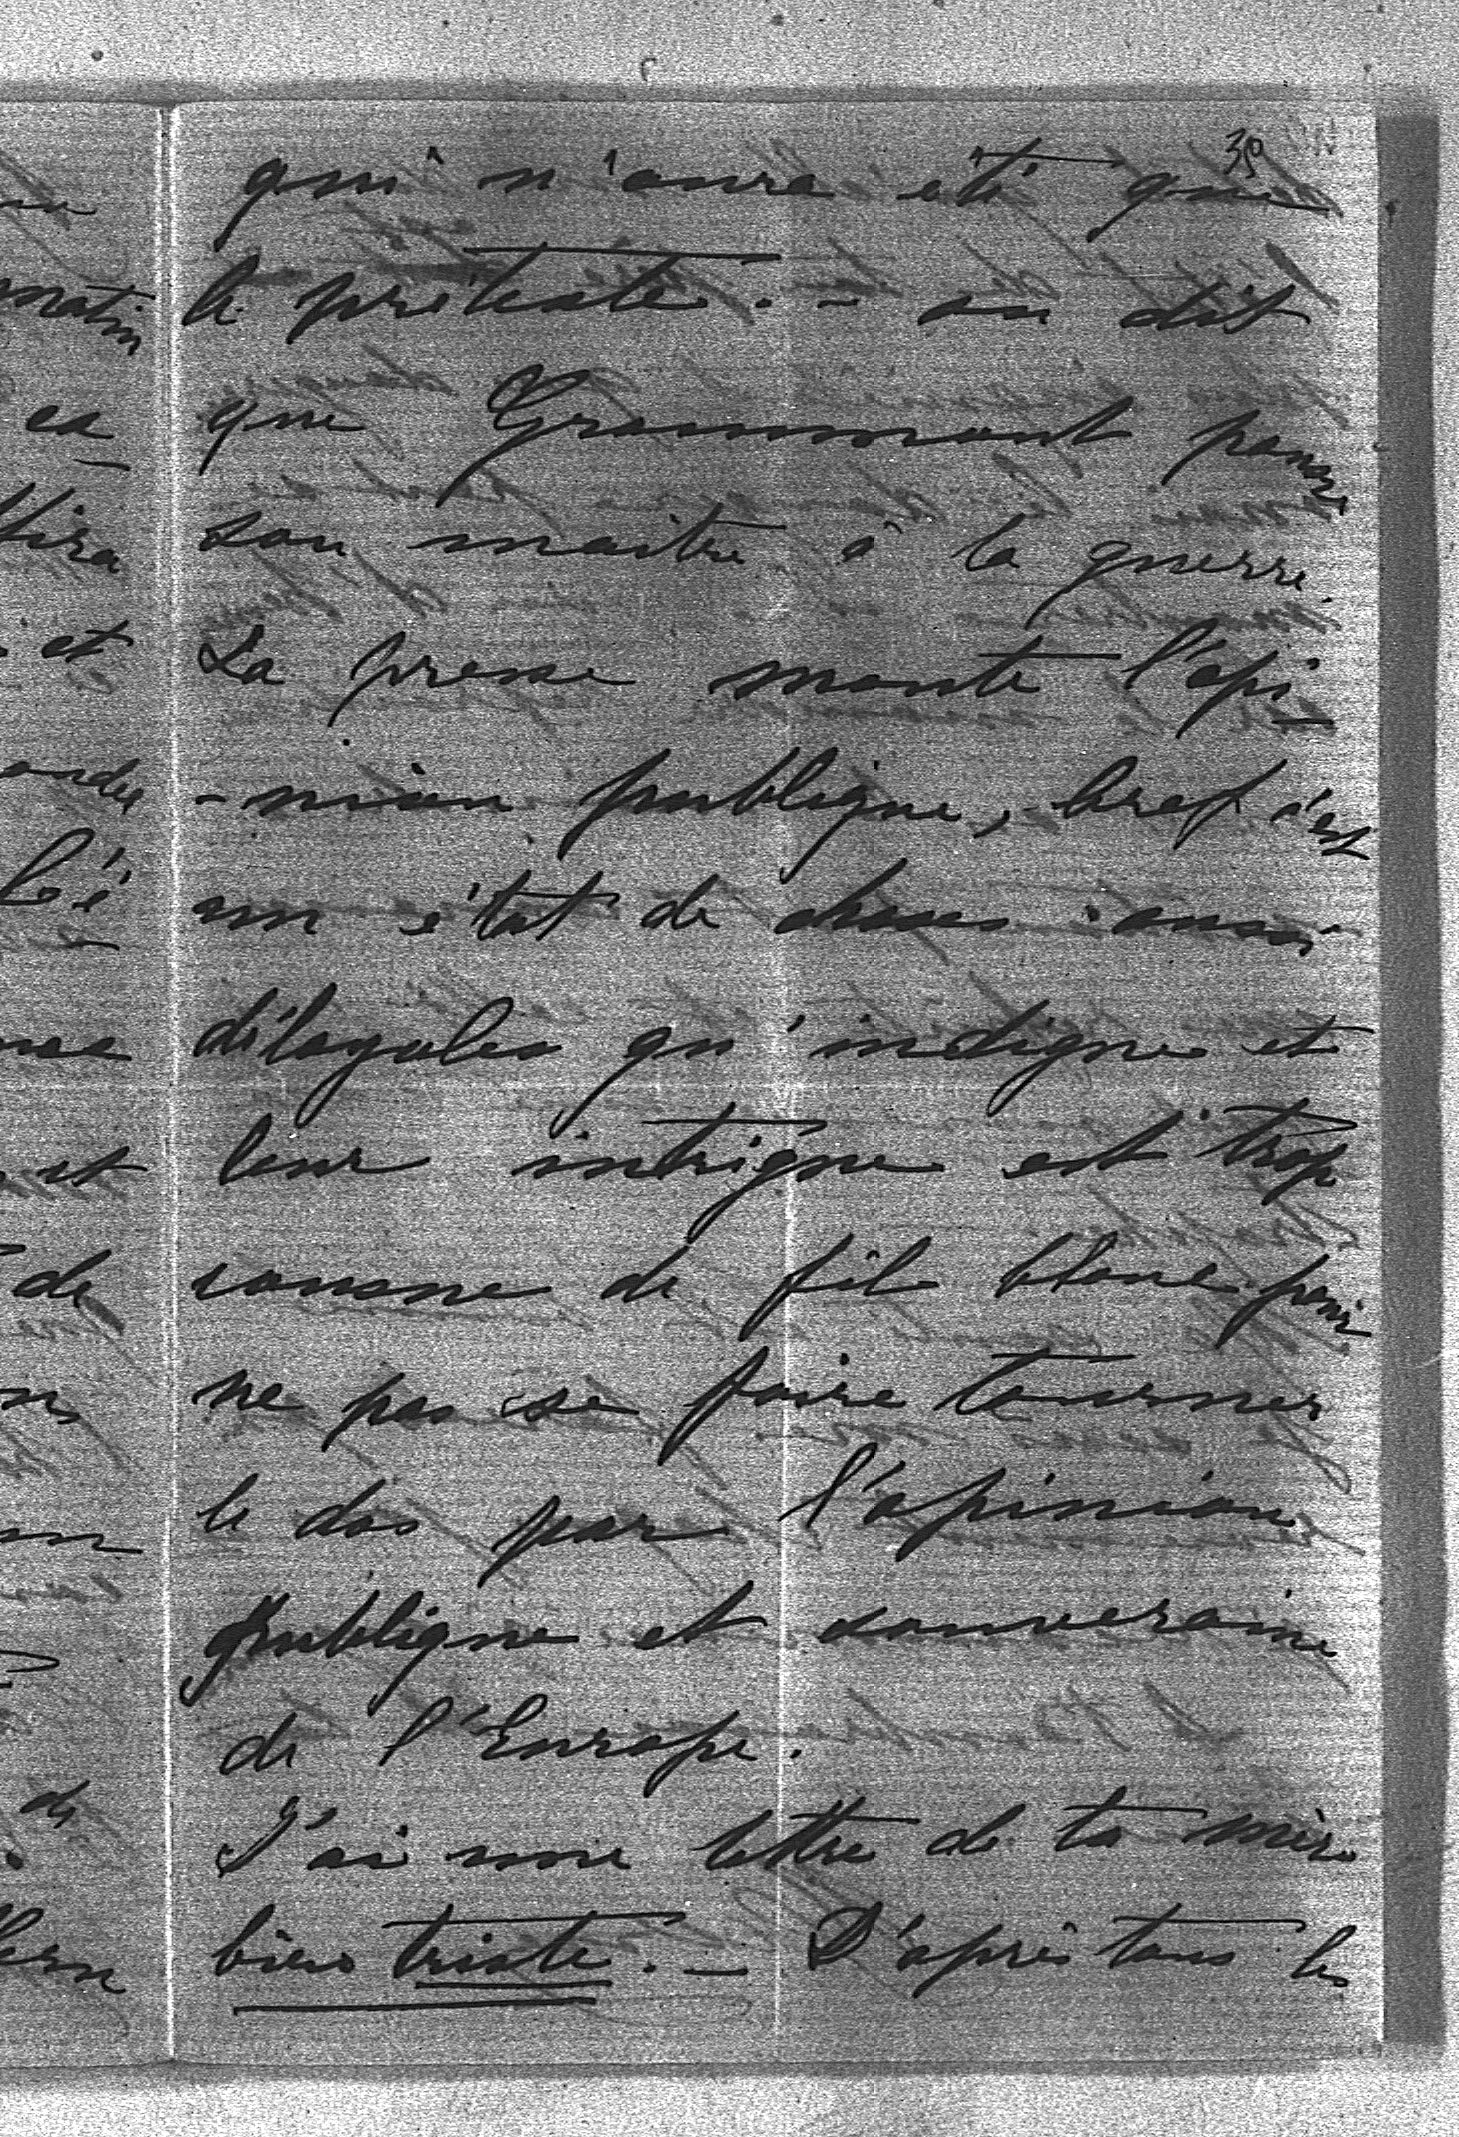 39
qui n'aura été que
le prétexte. - on dit
que Grammont pousse
son maitre à la guerre.
La presse monte l'opi
-nion publique, bref c'est
un état de choses aussi
déloyales qu'indigne et
leur intrigue est trop
cousue de fil blanc pour
ne pas se faire tourner
le dos par l'opinion
publique et souveraine
de l'Europe.
J'ai une lettre de ta mère
bien triste. - D'après tous les